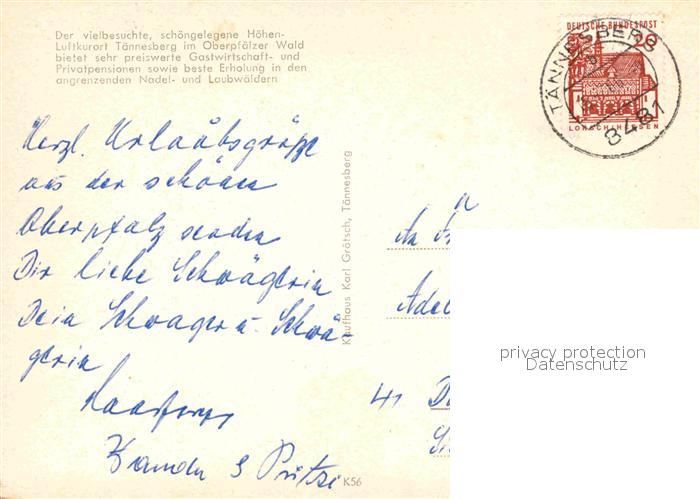 Der vielbesuchte, schöngelegene Höhen-
Luftkurort Tännesberg im Oberpfälzer Wald
bietet sehr preiswerte Gastwirtschaft- und
Privatpensionen sowie beste Erholung in den
angrenzenden Nadel- und Laubwäldern
DEUTSCHE BUNDESPOST
20
LORSCH/HESSEN
TÄNNESBERG
8481
Herzl. Urlaubsgrüße
aus der schönen
Oberpfalz senden
Dir liebe Schwägerin
Dein Schwager u. Schwä-
gerin
Kaufhaus Karl Grötsch, Tännesberg
An
Adel
41
privacy protection
Datenschutz
K56